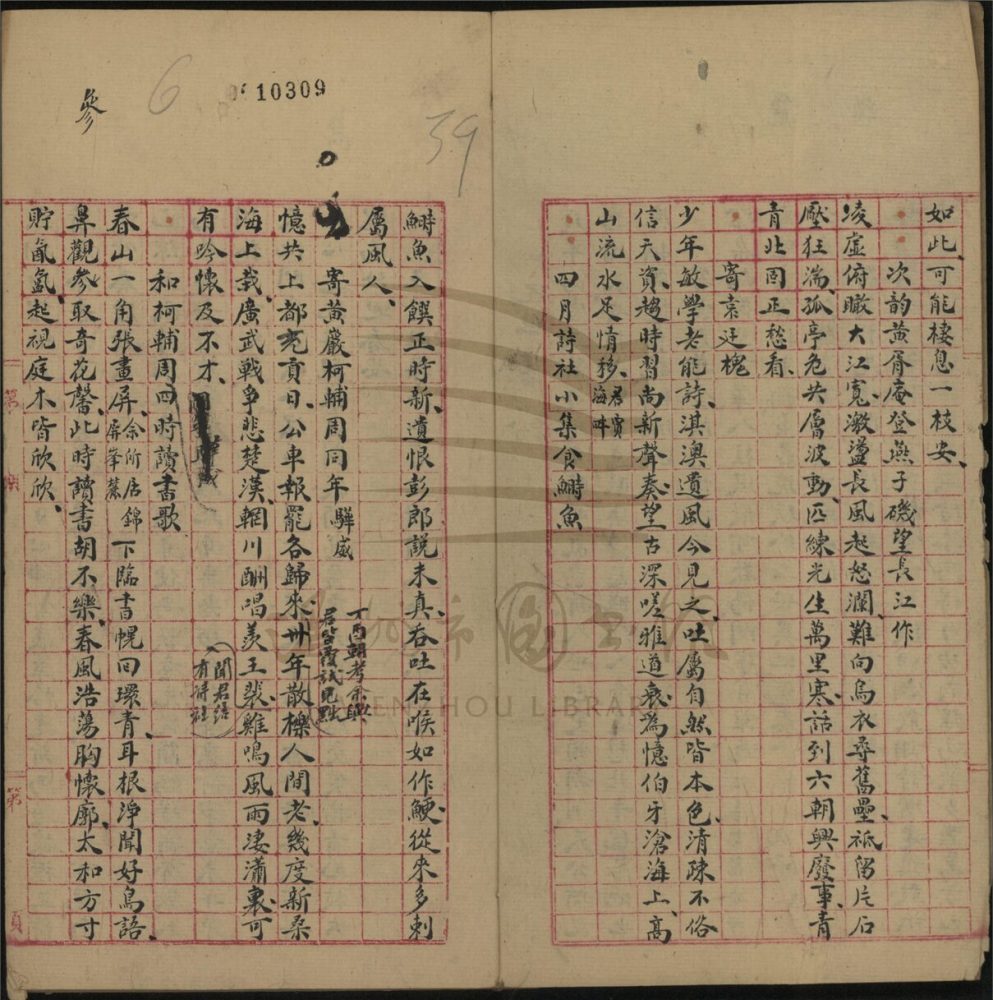 如此、可能棲息一枝安、
次韵黄胥庵登燕子磯望長江作
凌虛俯瞰大江寬、激盪長風起怒瀾、難向烏衣尋舊壘、祇留片石
壓狂湍、孤亭危共層波動、匹練光生萬里寒、話到六朝興廢事、青
青北固正愁看、
寄袁廷槐
少年敏學老能詩、淇澳遺風今見之、吐屬自然皆本色、清疎不俗
信天資、趨時習尚新聲奏、望古深嗟雅道衰、為憶伯牙滄海上、高
山流水足情移、君賈海咔
四月詩社小集食鰣魚
10309
6
39
參
鰣魚入饌正時新、遺恨彭郎説未真、吞吐在喉如作鯁、從來多刺
屬風人、
寄黄巖柯輔周同年驊威
丁酉朝考余與
君皆覆試見黜
憶共上都充貢日、公車報罷各歸來、卅年散櫟人間老、幾度新桑
海上栽、廣武戰爭悲楚漢、輞川酬唱羡王裴、雞鳴風雨淒瀟裏、可
聞君結
有詩社
有吟懷及不才、
和柯輔周四時讀書歌
春山一角張畫屏、余所居錦屏峯麓下臨書幌回環青、耳根淨聞好鳥語、
鼻觀參取奇花馨、此時讀書胡不樂、春風浩蕩胸懷廓、太和方寸
貯氤氲、起視庭木皆欣欣、
第
第
頁